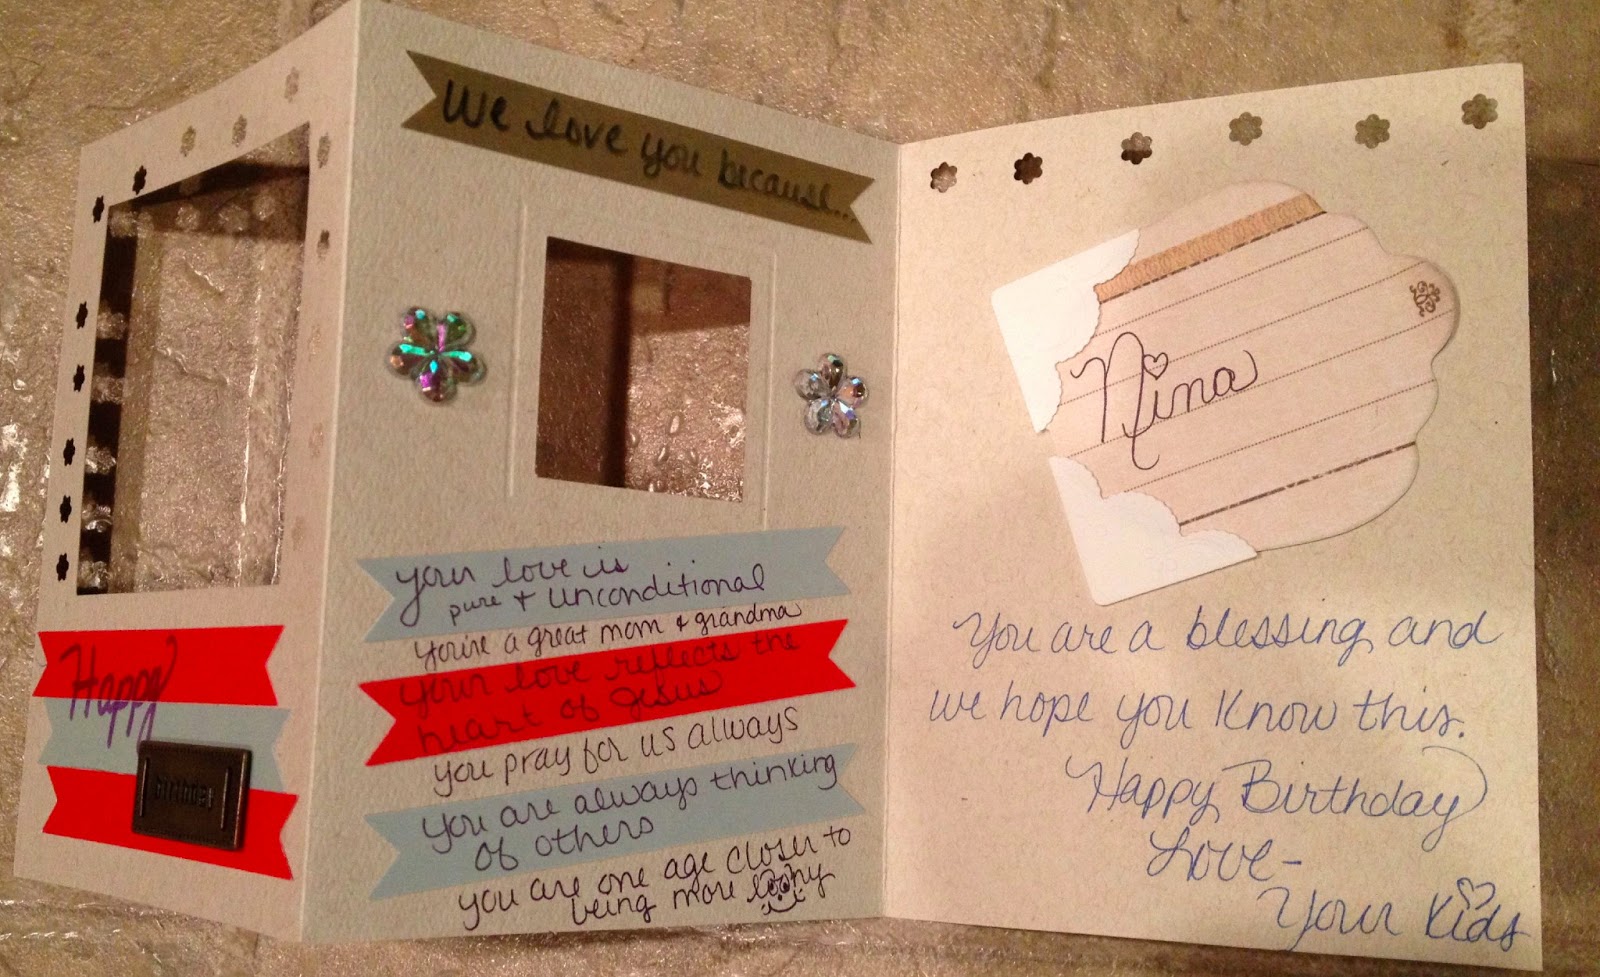 Happy
birthday
We love you because...
your love is
pure + unconditional
you're a great mom & grandma
your love reflects the
heart of Jesus
you pray for us always
you are always thinking
of others
you are one age closer to
being more loony
Nina
You are a blessing and
we hope you know this.
Happy Birthday
Love-
Your Kids